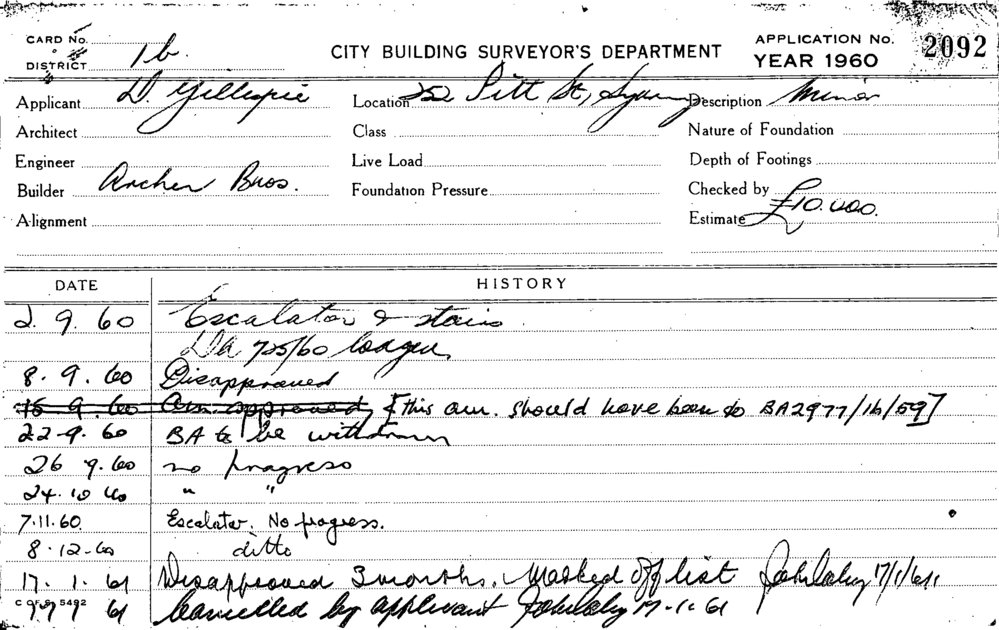 CARD No.
DISTRICT 1b.
CITY BUILDING SURVEYOR'S DEPARTMENT
APPLICATION No. 2092
YEAR 1960
Applicant D. Gillespie Location 252 Pitt St, Sydney Description Minor
Architect Class Nature of Foundation
Engineer Live Load Depth of Footings
Builder Archer Bros. Foundation Pressure Checked by
Alignment Estimate £10.000.
DATE HISTORY
2. 9. 60 Escalator & stairs
DA 725/60 lodged
8. 9. 60 Disapproved
15 9. 60 Am. approved [this am. should have been to BA2977/16/59]
22-9. 60 BA to be withdrawn
26 9. 60 no progress
24. 10 60 " "
7.11.60. Escalator. No progress.
8-12-60 ditto
17. 1. 61 Disapproved 3 months. Marked off list 17/1/61.
C OF S 5492
61 Cancelled by applicant 17-1-61